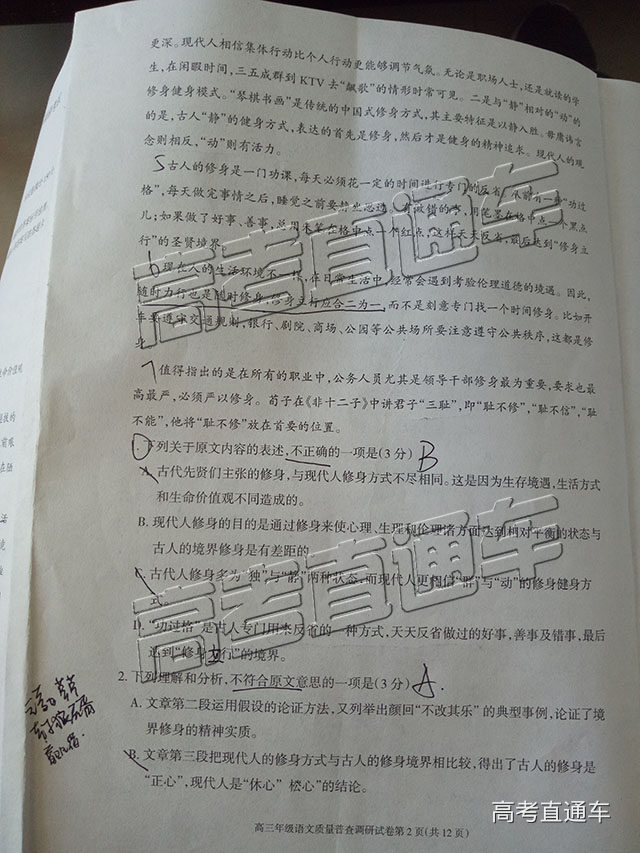 更深。现代人相信集体行动比个人行动更能够调节气氛。无论是职场人士,还是就读的学
生,在闲暇时间,三五成群到 KTV 去“飙歌”的情形时常可见。二是与“静”相对的“动”的
修身健身模式。“琴棋书画”是传统的中国式修身方式,其主要特征是以静入胜。毋庸讳言
的是,古人“静”的健身方式,表达的首先是修身,然后才是健身的精神追求。现代人的观
念则相反,“动”则有活力。
5古人的修身是一门功课,每天必须花一定的时间进行专门的反省,
格”,每天做完事情之后,睡觉之前要
儿;如果做了好事、善事,总用朱笔在格中点一个红点,这样天天反省,最后达到“修身立
行”的圣贤境界。
6现在人的生活环境不一样,在日常生活中,经常会遇到考验伦理道德的境遇。因此,
随时力行也是随时修身,修身立行应合二为一,而不是刻意专门找一个时间修身。比如开
车要遵守交通规则,银行、剧院、商场、公园等公共场所要注意遵守公共秩序,这都是修
身。
7值得指出的是在所有的职业中,公务人员尤其是领导干部修身最为重要,要求也最
高最严,必须严以修身。荀子在《非十二子》中讲君子“三耻”,即“耻不修”,“耻不信”,“耻
不能”,他将“耻不修”放在首要的位置。
1.下列关于原文内容的表述,不正确的一项是(3 分) B
A. 古代先贤们主张的修身,与现代人修身方式不尽相同。这是因为生存境遇,生活方式
和生命价值观不同造成的。
B. 现代人修身的目的是通过修身来使心理、生理和伦理诸方面达到相对平衡的状态与
古人的境界修身是有差距的。
C. 古代人修身多为“独”与“静”两种状态,而现代人更相信“群”与“动”的修身健身方
式。
D. “功过格”是古人专门用来反省的一种方式,天天反省做过的好事,善事及错事,最后
达到“修身立行”的境界。
2. 下列理解和分析,不符合原文意思的一项是(3 分) A.
A. 文章第二段运用假设的论证方法,又列举出颜回“不改其乐”的典型事例,论证了境
界修身的精神实质。
B. 文章第三段把现代人的修身方式与古人的修身境界相比较,得出了古人的修身是
“正心”,现代人是“休心”“松心”的结论。
高三年级语文质量普查调研试卷第 2 页(共 12 页)
高考直通车
高考直通车
高考直通车
高考直通车
高考直通车